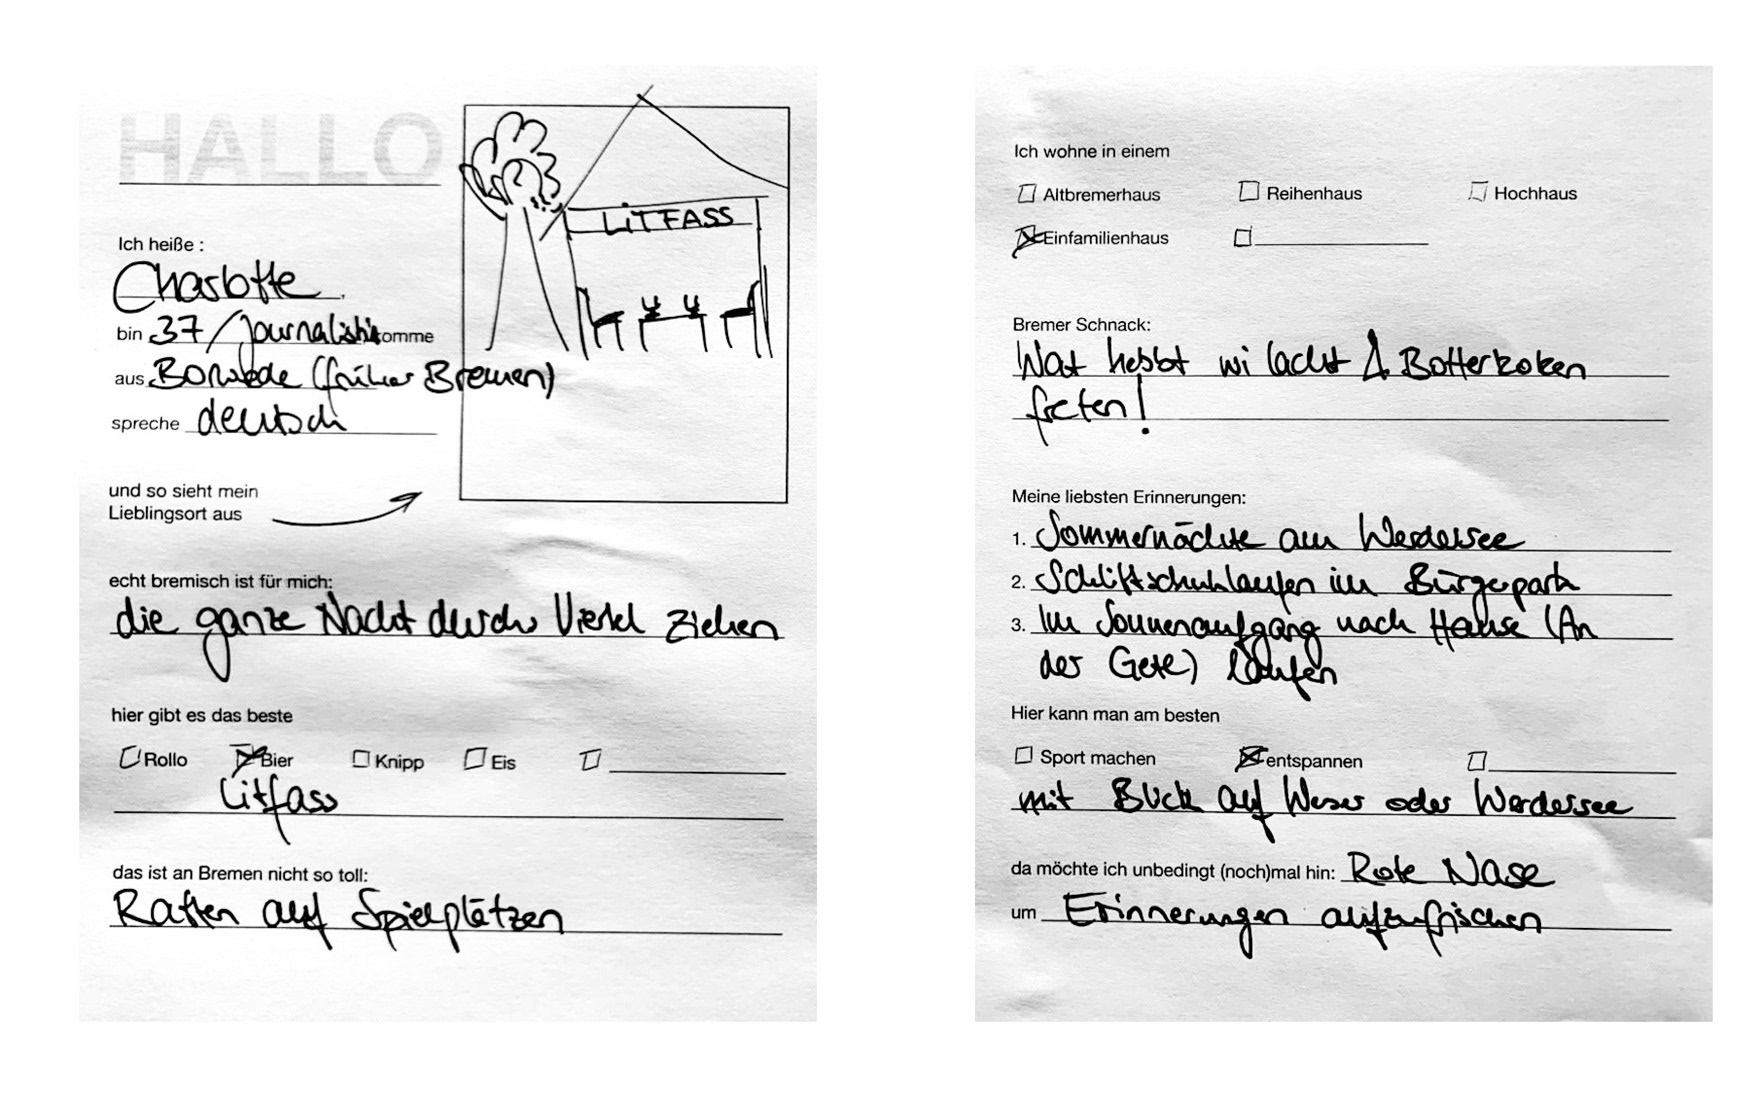 HALLO
LITFASS
Ich heiße :
Charlotte
bin 37 / Journalistin komme
aus Borwede (früher Bremen)
spreche deutsch
und so sieht mein
Lieblingsort aus
echt bremisch ist für mich:
die ganze Nacht durchs Viertel ziehen
hier gibt es das beste
Rollo Bier Knipp Eis
Litfass
das ist an Bremen nicht so toll:
Ratten auf Spielplätzen
Ich wohne in einem
Altbremerhaus Reihenhaus Hochhaus
Einfamilienhaus
Bremer Schnack:
Wat hebbt wi lacht & Botterkoken
freten!
Meine liebsten Erinnerungen:
1. Sommernächte am Werdersee
2. Schlittschuhlaufen im Bürgerpark
3. Im Sonnenaufgang nach Hause (An
der Gete) laufen
Hier kann man am besten
Sport machen entspannen
mit Blick auf Weser oder Werdersee
da möchte ich unbedingt (noch)mal hin: Rote Nase
um Erinnerungen aufzufrischen